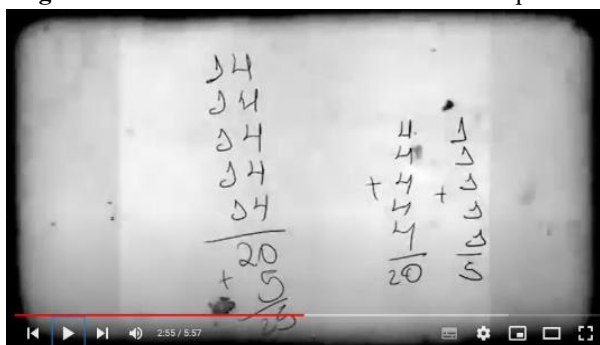 14
14
14
14
14
20
+ 5
25
4
4
+ 4
4
4
20
1
1
+ 1
1
1
5
2:55 / 5:57